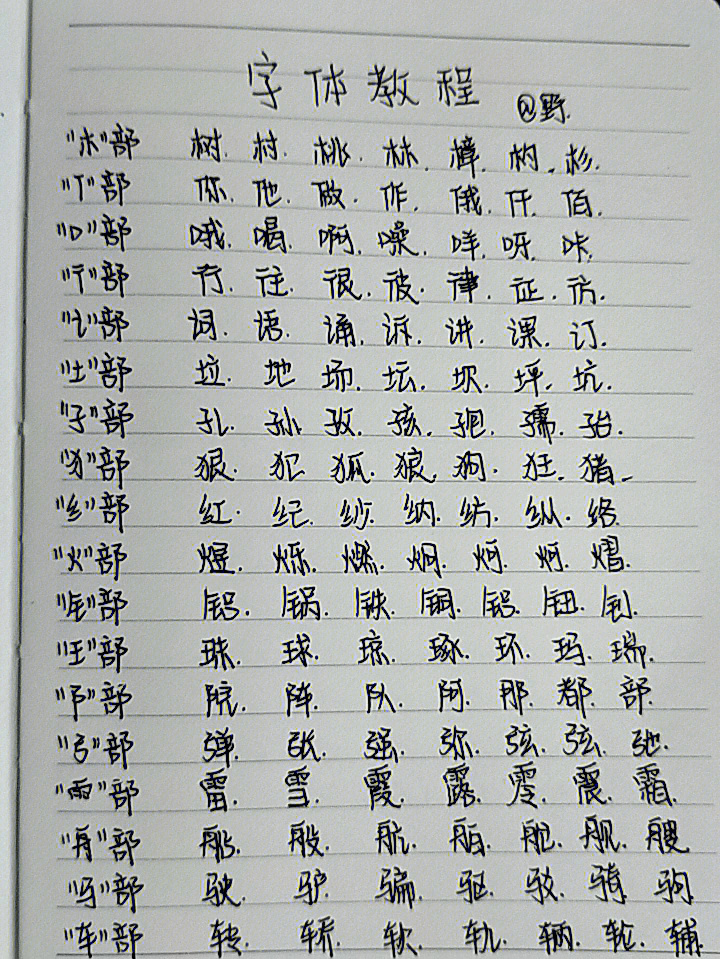 字体教程 @野.
"木"部 树. 村. 桃. 林. 樟. 构. 杉.
"亻"部 你. 他. 做. 作. 俄. 仟. 佰.
"口"部 哦. 喝. 啊. 噪. 咩. 呀. 咔.
"彳"部 行. 往. 很. 彼. 律. 征. 彷.
"讠"部 词. 语. 诵. 诉. 讲. 课. 订.
"土"部 垃. 地. 场. 坛. 坝. 坪. 坑.
"子"部 孔. 孙. 孜. 孩. 孢. 孺. 孡.
"犭"部 狠. 犯. 狐. 狼. 狗. 狂. 猪.
"纟"部 红. 纪. 纱. 纳. 纺. 纵. 络.
"火"部 煜. 烁. 燃. 炯. 炣. 炣. 熠.
"钅"部 铝. 锅. 铁. 铜. 铝. 钮. 钊.
"王"部 珠. 球. 琼. 琢. 环. 玛. 瑞.
"阝"部 院. 阵. 队. 阿. 那. 都. 部.
"弓"部 弹. 张. 强. 弥. 弦. 弦. 弛.
"雨"部 雷. 雪. 霞. 露. 零. 震. 霜.
"舟"部 船. 般. 航. 舶. 舱. 舰. 艘
"马"部 驶. 驴. 骗. 驱. 驳. 骑. 驹.
"车"部 转. 轿. 软. 轨. 辆. 轮. 辅.